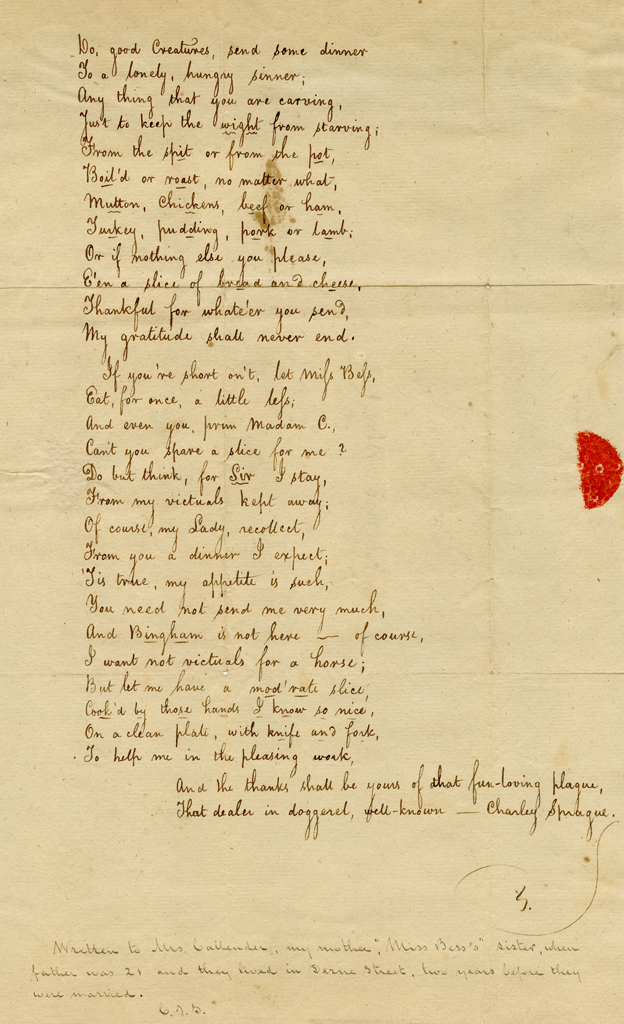 Do, good Creatures, send some dinner
To a lonely, hungry sinner;
Any thing that you are carving,
Just to keep the wight from starving;
From the spit or from the pot,
Boil'd or roast, no matter what,
Mutton, Chickens, beef or ham,
Turkey, pudding, pork or lamb;
Or if nothing else you please,
E'en a slice of bread and cheese,
Thankful for whate'er you send,
My gratitude shall never end.
If you're short on't, let Miſs Beſs,
Eat, for once, a little leſs;
And even you, prim Madam C.,
Can't you spare a slice for me?
Do but think, for Sir I stay,
From my victuals kept away;
Of course, my Lady, recollect,
From you a dinner I expect;
'Tis true, my appetite is such,
You need not send me very much,
And Bingham is not here — of course,
I want not victuals for a horse;
But let me have a mod'rate slice,
Cook'd by those hands I know so nice,
On a clean plate, with knife and fork,
To help me in the pleasing work,
And the thanks shall be yours of that fun-loving plague,
That dealer in doggerel, well-known — Charley Sprague.
Written to Mrs. Callender, my mother, "Miss Bess's" sister, when
father was 21 and they lived in Derne Street, two years before they
were married.
C. J. S.